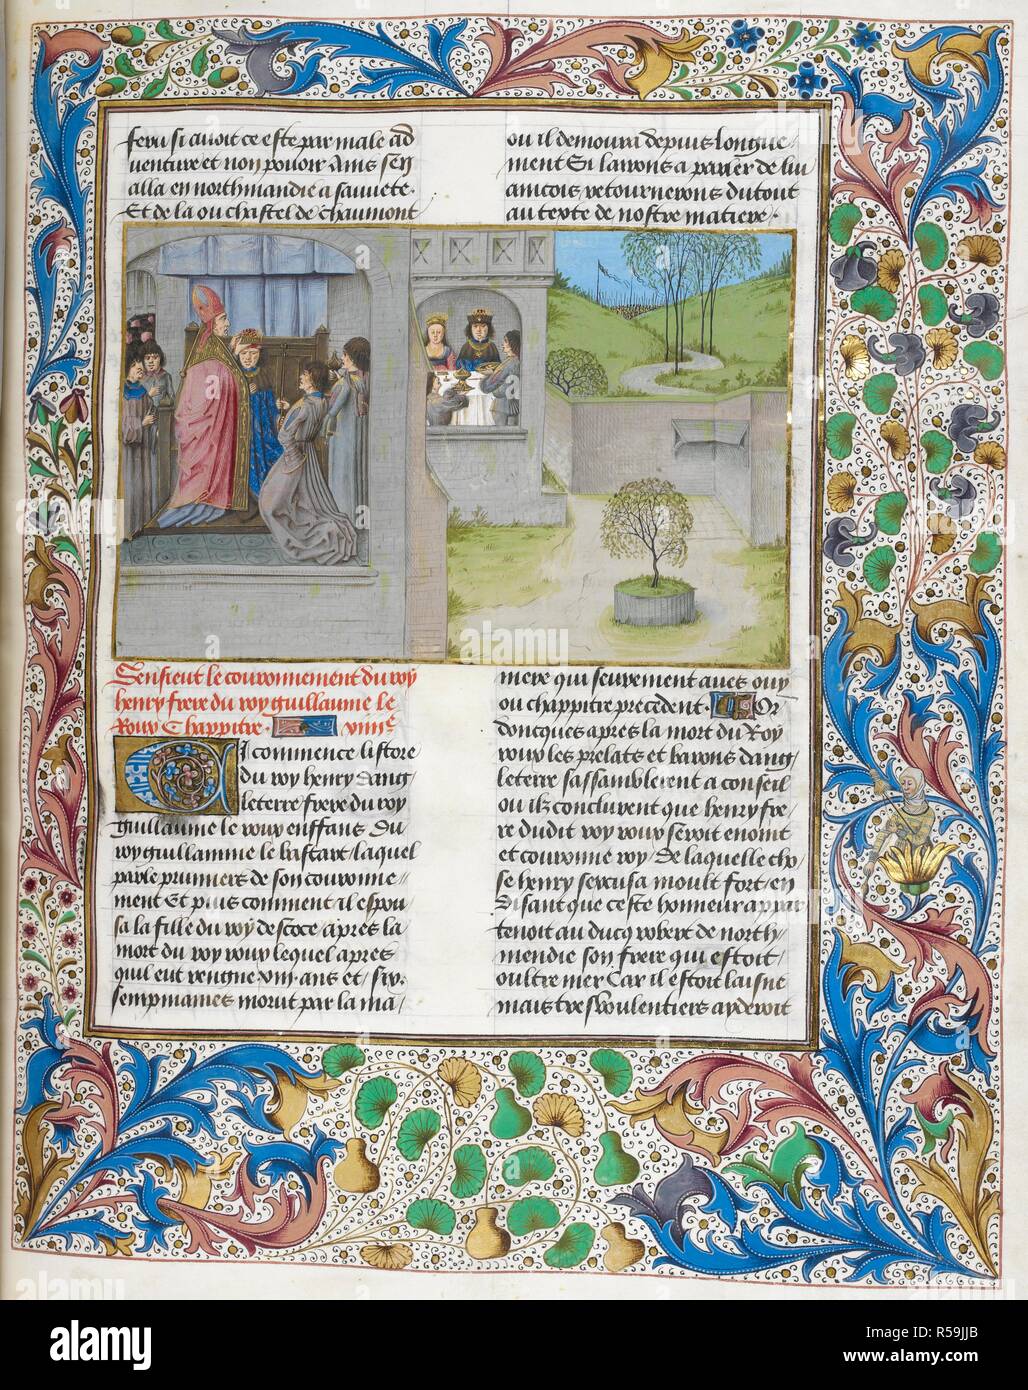 feru si auoit ce este par male ad
uenture et non pouoir Ains sen
alla en northmandie a sauuete.
Et de la ou chastel de Chaumont
ou il demoura depuis longue/
ment Si lairons a parler de lui
aincois retournerons du tout
au texte de nostre matiere.
Sensieut le couronnement du roy
henry frere du roy guillaume le
Roux Chappitre. viiie
Cy commence listore
du roy henry dang/
leterre frere du roy
guillaume le roux enffans du
roy guillamme le bastart/laquel
parle prumiers de son couronne/
ment Et puis comment il espou/
sa la fille du roy descoce/apres la
mort du roy roux lequel apres
quil eut regne xiii. ans et/six.
sempmaines morut par la ma/
niere qui seurement aues ouy
ou chappitre precedent. Or
doncques apres la mort du Roy
roux les prelats et barons dang/
leterre sassamblerent a conseil
ou ilz conclurent que henry fre/
re dudit roy roux seroit enoint
et couronne roy/ de laquelle cho/
se henry sexcusa moult fort/en
disant que ceste honneur appar
tenoit au ducq robert de north/
mendie son frere qui estoit
oultre mer Car il estoit laisne
mais tres voulentiers ayderoit
alamy
alamy stock photo
alamy
Image ID: R59JJB
www.alamy.com